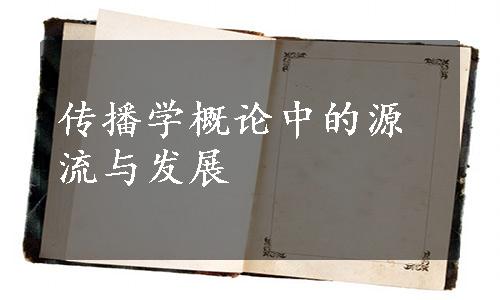 传播学概论中的源
流与发展